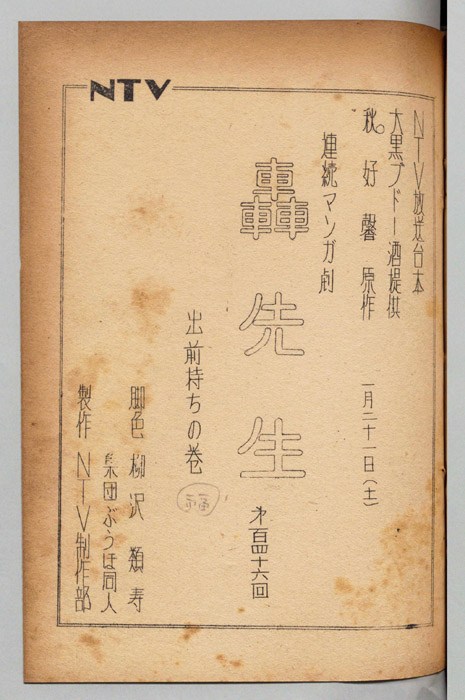 NTV
NTV放送台本
大黒ブドー酒提供
秋好馨原作
一月二十一日(土)
連続マンガ劇
轟先生
第百四十六回
出前持ちの巻
脚色 柳沢類寿
集団ぶうほ同人
製作 NTV制作部